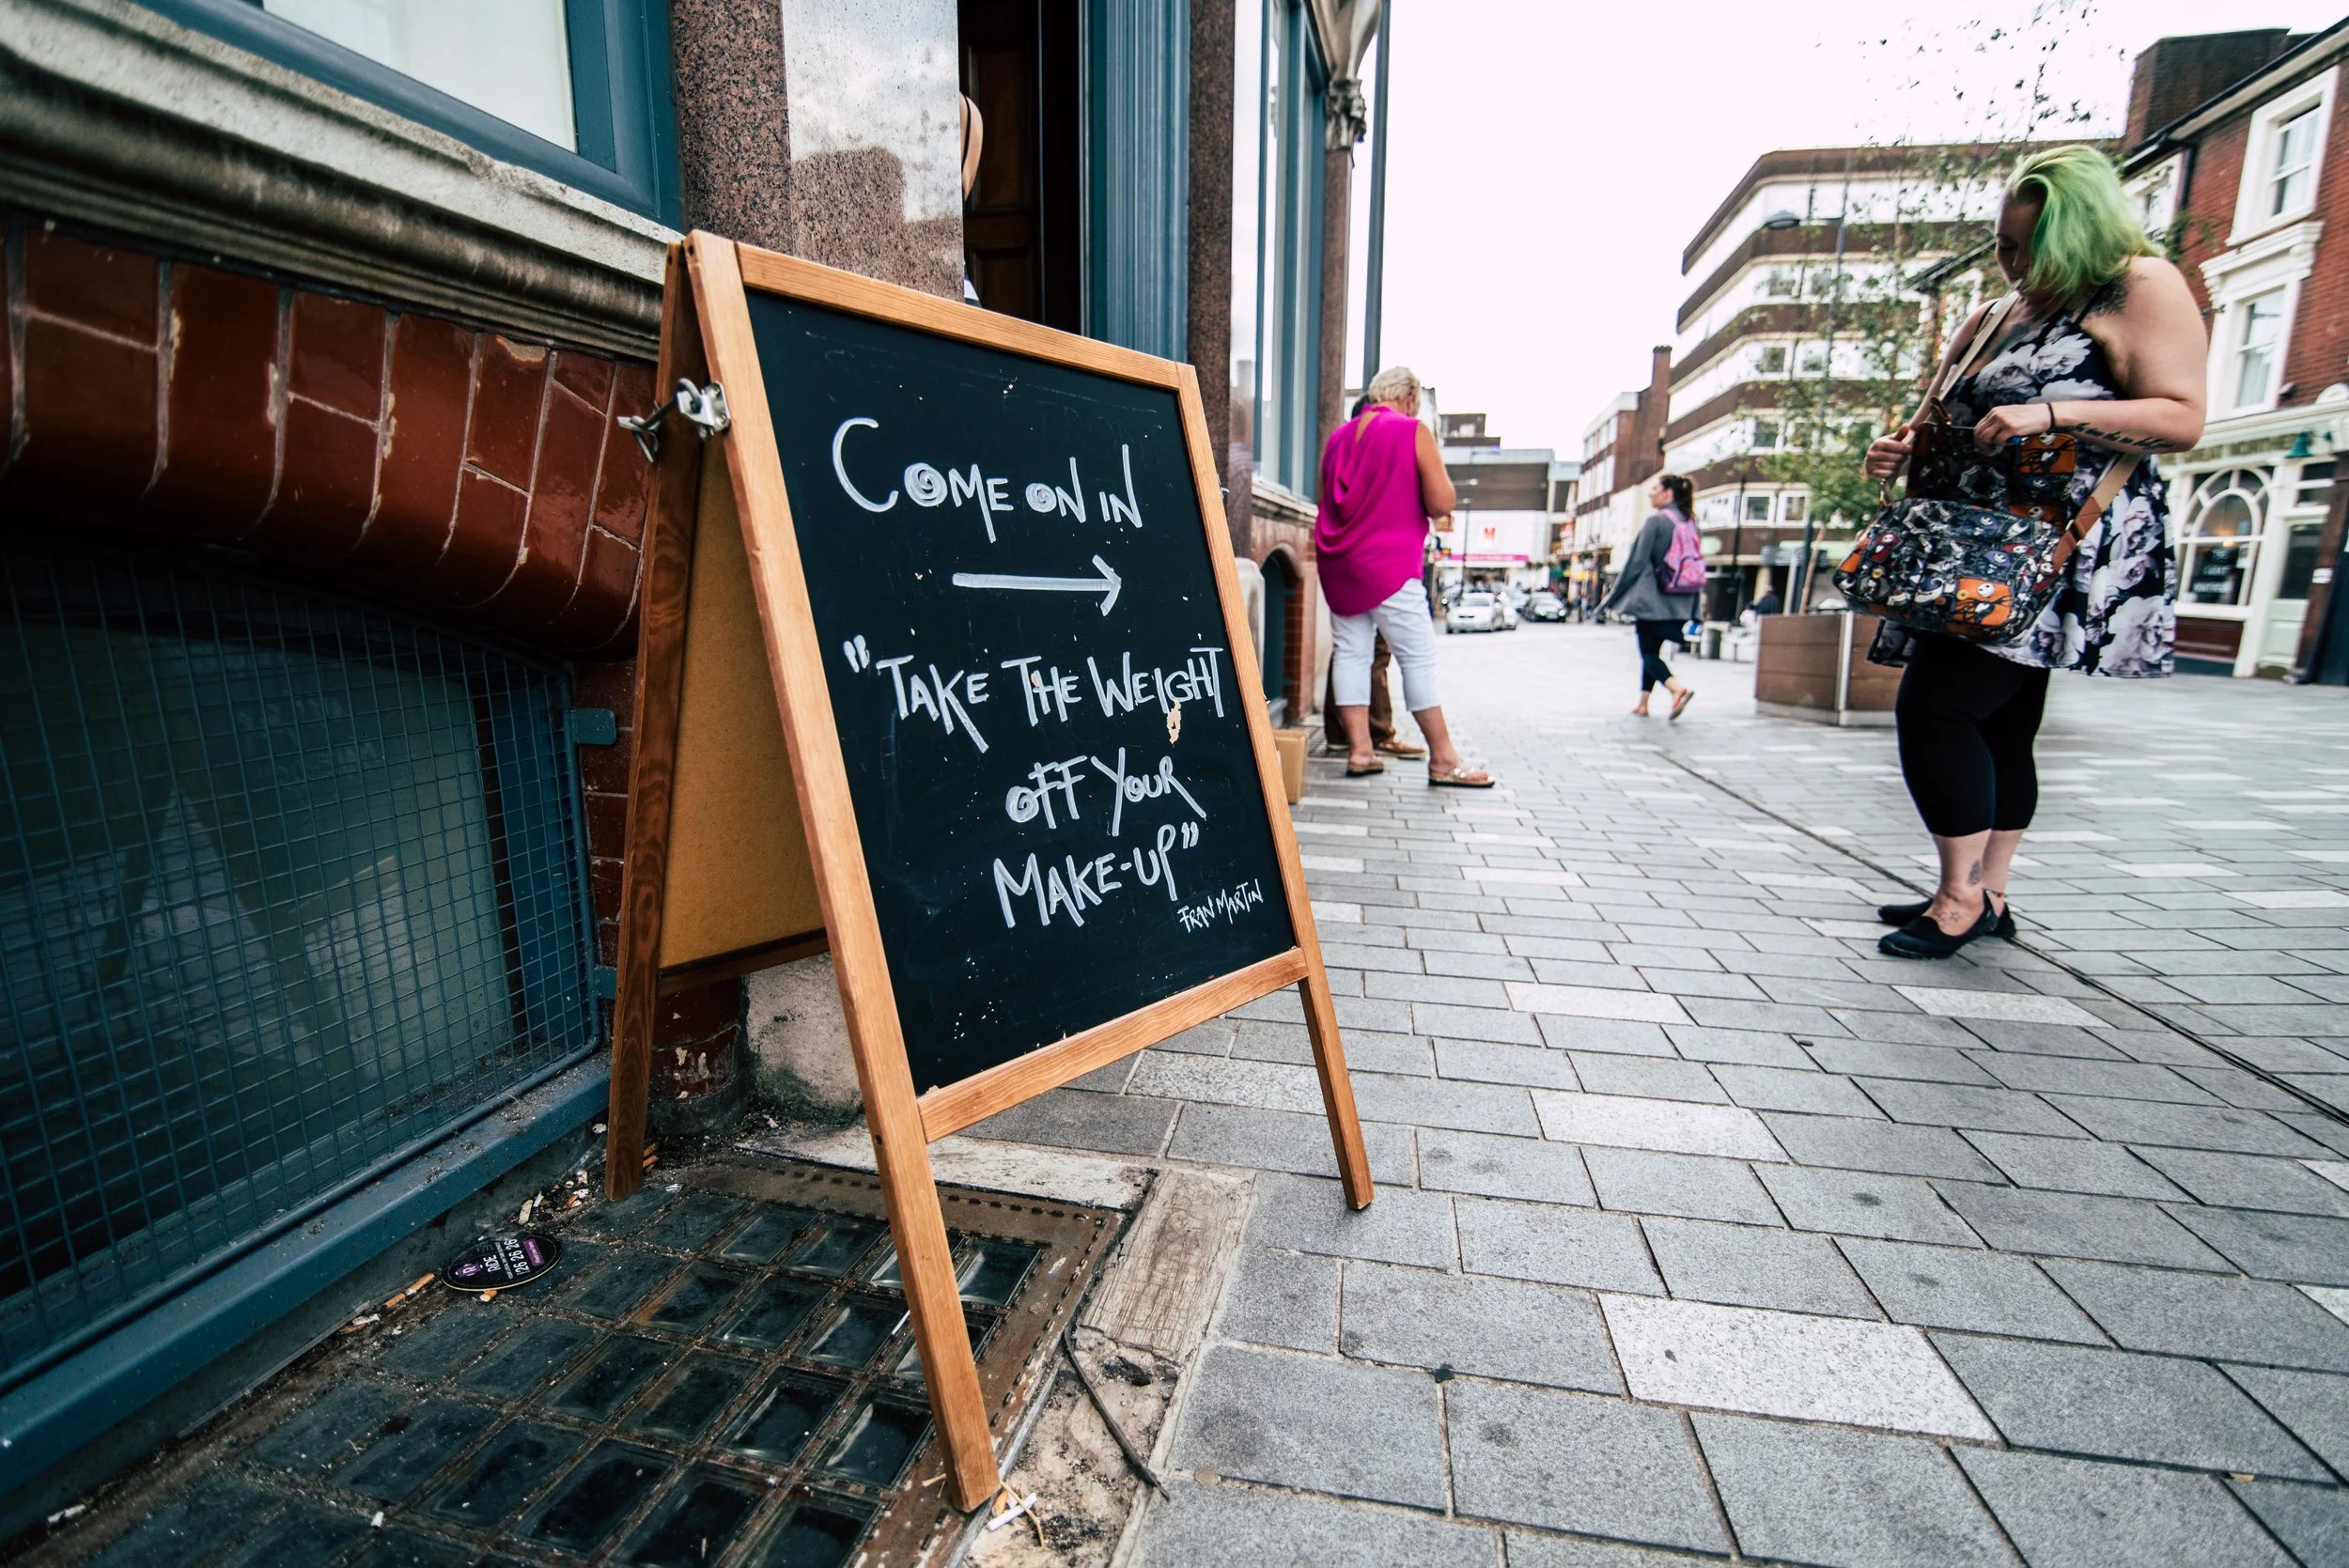 COME ON IN
→
"TAKE THE WEIGHT
OFF YOUR
MAKE-UP"
FRAN MARTIN
RIDE
26 26 26